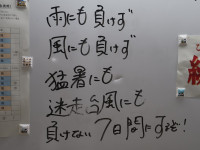 雨にも負けず
風にも負けず
猛暑にも
迷走台風にも
負けない7日間にすっぞ!